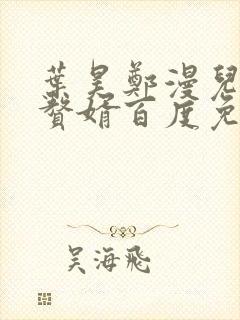 葉昊鄭漫兒
贅婿百度免
吳海飛